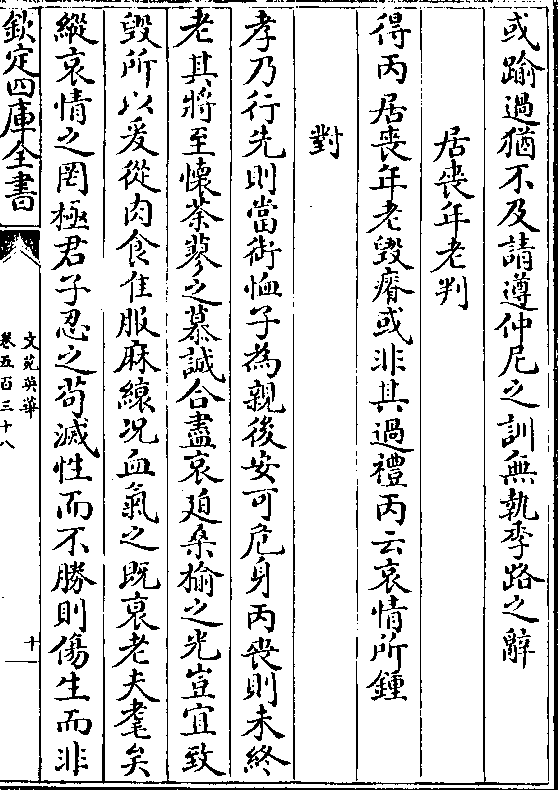 或踰過猶不及請遵仲尼之訓無執季路之辭
居喪年老判
得丙居喪年老毀瘠或非其過禮丙云哀情所鍾
對
孝乃行先則當銜恤子為親後安可危身丙喪則未終
老其將至懷荼蓼之慕誠合盡哀廹桑榆之光豈宜致
毀所以爰從肉食隹服麻縗况血氣之既衰老夫耄矣
縱哀情之罔極君子忍之茍滅性而不勝則傷生而非
欽定四庫全書
文苑英華
卷五百三十八
十